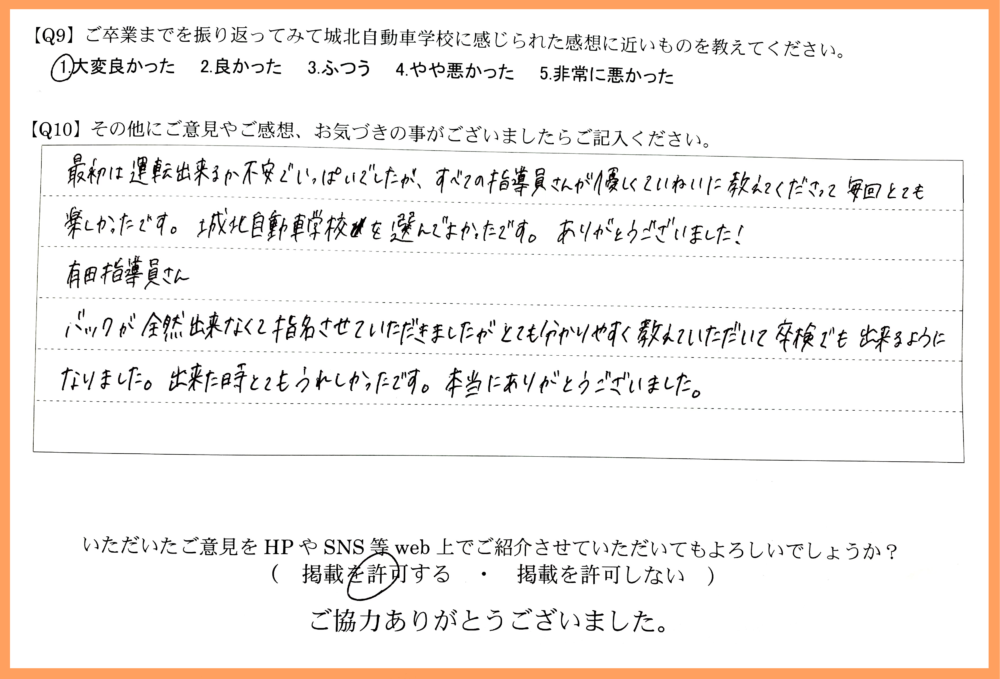 【Q9】ご卒業までを振り返ってみて城北自動車学校に感じられた感想に近いものを教えてください。
1.大変良かった 2.良かった 3.ふつう 4.やや悪かった 5.非常に悪かった
【Q10】その他にご意見やご感想、お気づきの事がございましたらご記入ください。
最初は運転出来るか不安でいっぱいでしたが、すべての指導員さんが優しくていねいに教えてくださって毎回とても
楽しかったです。城北自動車学校を選んでよかったです。ありがとうございました!
有田指導員さん
バックが全然出来なくて指名させていただきましたがとても分かりやすく教えていただいて卒検でも出来るように
なりました。出来た時とてもうれしかったです。本当にありがとうございました。
いただいたご意見をHPやSNS等web上でご紹介させていただいてもよろしいでしょうか?
( 掲載を許可する ・ 掲載を許可しない )
ご協力ありがとうございました。